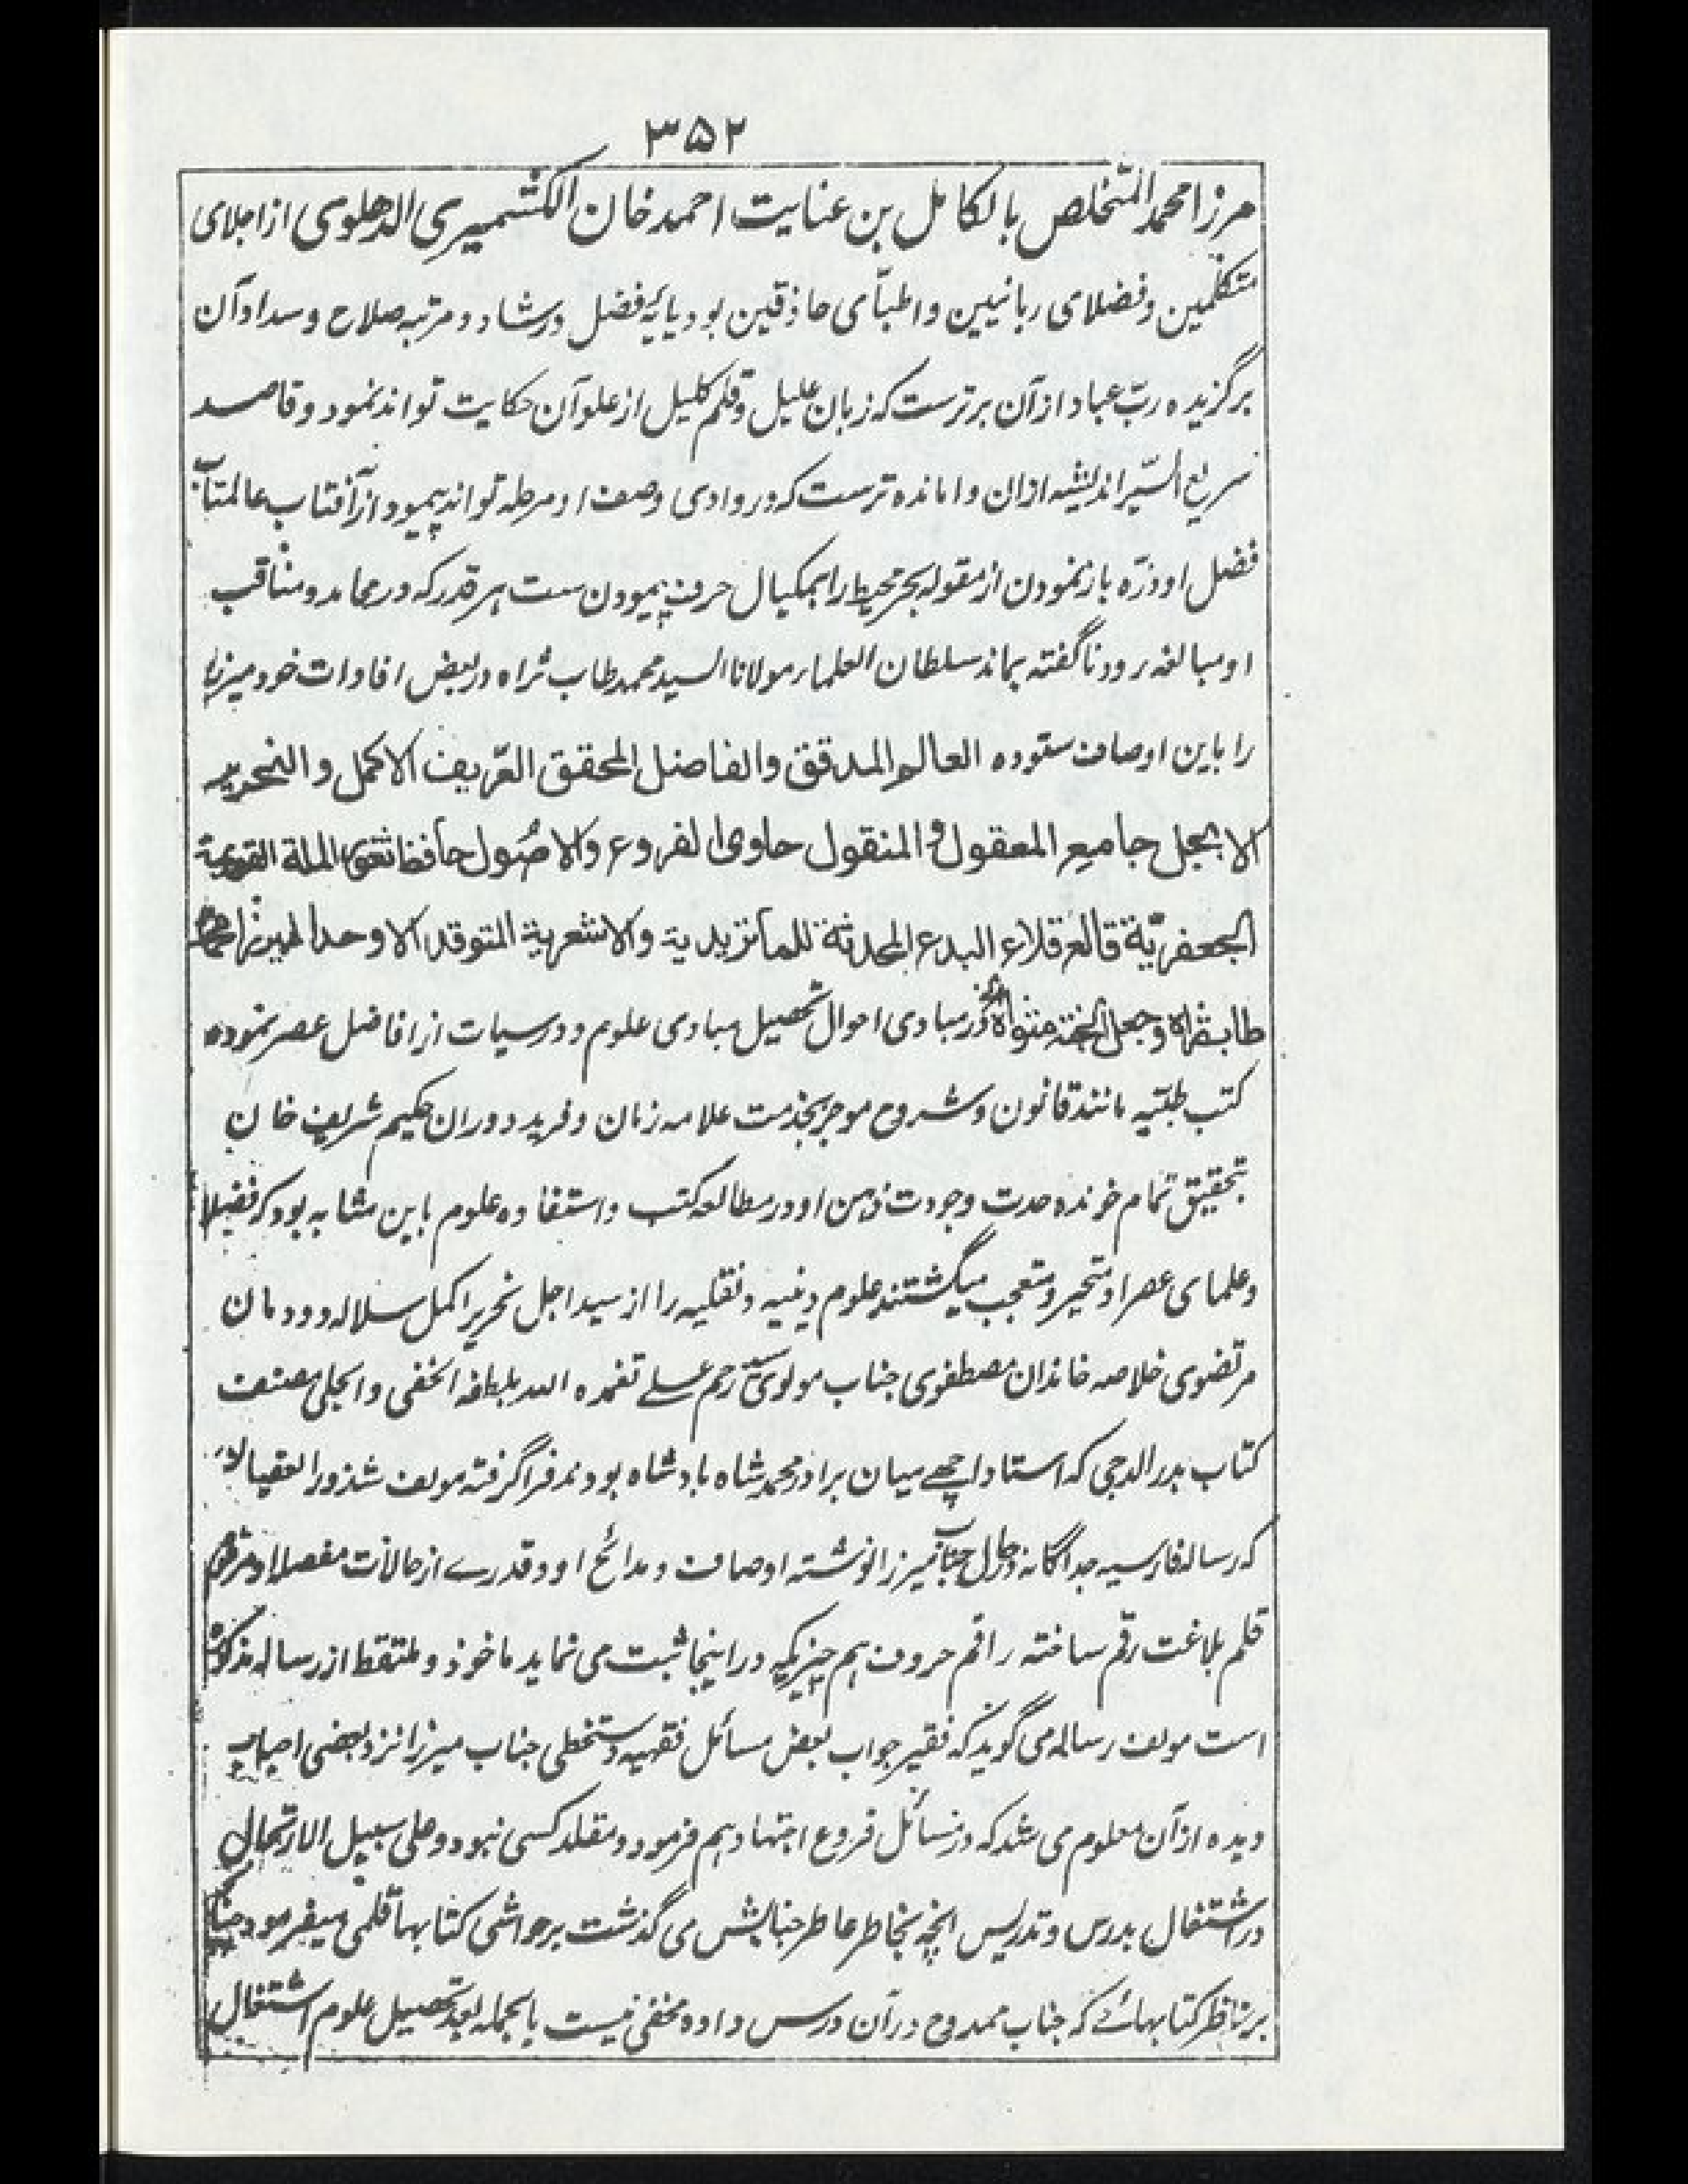 ۳۵۲
مرزا محمد المتخلص بالکامل بن عنایت احمد خان الکشمیری الدهلوی از اجلای
متکلمین و فضلای ربانیین و اطبّای حاذقین بود پایۀ فضل و رشاد و مرتبه صلاح و سداد آن
برگزیده ربّ عباد ازان برترست که زبان علیل و قلم کلیل از علو آن حکایت تواند نمود و قاصد
سریع السّیر اندیشه ازان وامانده ترست که در وادی وصف او مرحله تواند پیمود از آفتاب عالمتاب
فضل او ذرّه باز نمودن از مقوله بحر محیط را بمکیال حرف پیمودن ست هر قدر که در محامد و مناقب
او مبالغه رود ناگفته بماند سلطان العلماء مولانا السید محمد طاب ثراه در بعض افادات خود میرزا
را باین اوصاف ستوده العالم المدقق والفاضل المحقق العّریف الاکمل و النحریر
الابجل جامع المعقول و المنقول حاوی الفروع والاصُول حافظ ثغور الملة القویمة
الجعفریّة قالع قلاع البدع المحدثة للماتریدیة والاشعریة المتوقد الاوحد المیرزا محمد
طاب ثراه وجعل الجنّة مثواه در مبادی احوال تحصیل مبادی علوم و درسیات از افاضل عصر نموده
کتب طبّیه مانند قانون و شروح موجز بخدمت علامه زمان و فرید دوران حکیم شریف خان
بتحقیق تمام خونده حدت وجودت ذهن او در مطالعه کتب و استفاده علوم باین مثابه بود که فضلا
و علمای عصر او متحیر و متعجب میگشتند علوم دینیه و نقلیه را از سید اجل نحریر اکمل سلاله دودمان
مرتضوی خلاصه خاندان مصطفوی جناب مولوی سیّد رحم علے تغمده الله بلطفه الخفی والجلی مصنف
کتاب بدر الدجی که استاد اچھے میان برادر محمد شاه بادشاه بودند فرا گرفته مولف شذور العقیان
که رساله فارسیه جداگانه در حال جناب میرزا نوشته اوصاف و مدائح او و قدرے از حالات مفصلا او مرقوم
قلم بلاغت رقم ساخته راقم حروف هم چیزیکه در اینجا ثبت می نماید ماخوذ و ملتقط از رساله مذکوره
است مولف رساله می گوید که فقیر جواب بعض مسائل فقهیه دستخطی جناب میرزا نزد بعضی احباب
دیده ازآن معلوم می شد که در مسائل فروع اجتهاد هم فرمود و مقلد کسی نبود و علی سبیل الارتجال
در اشتغال بدرس و تدریس انچه بخاطر عاطر جنابش می گذشت بر حواشی کتابها قلمی میفرمود چنانکه
بر ناظر کتابهائے که جناب ممدوح در آن درس داده مخفی نیست بالجمله بعد تحصیل علوم اشتغال